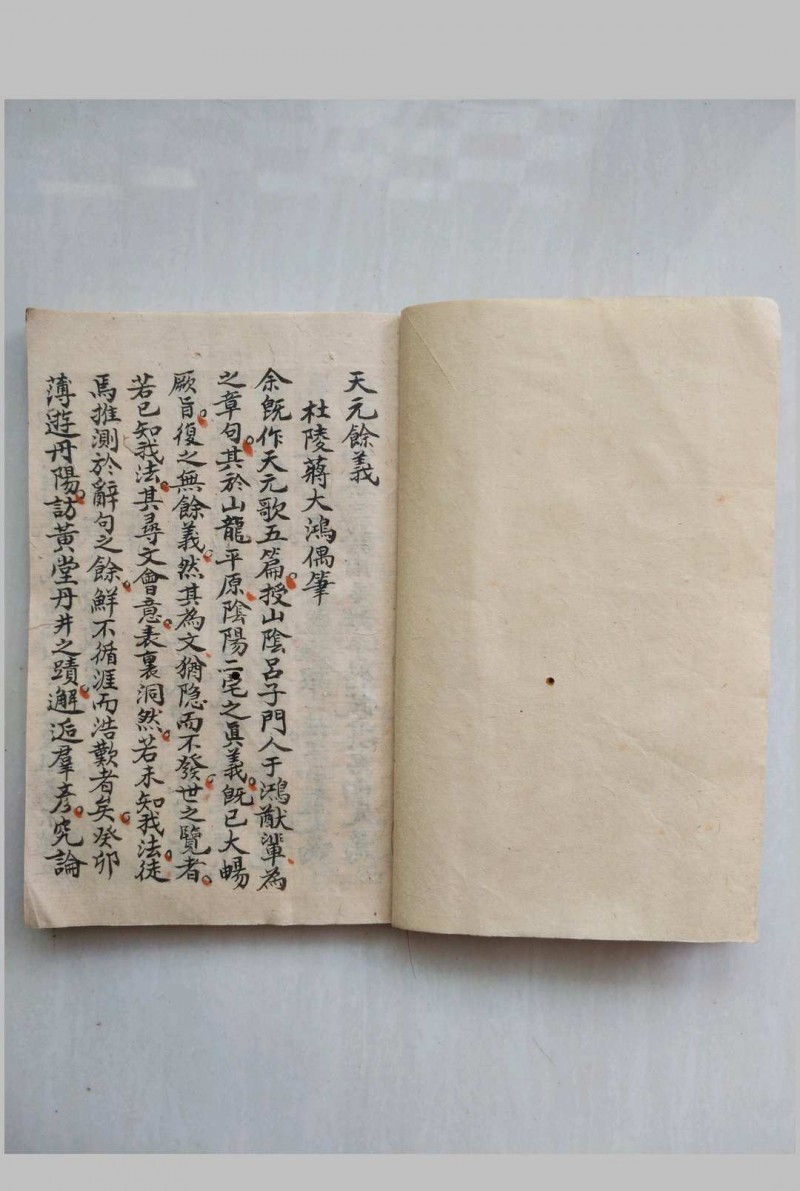 天元餘義
杜陵蔣大鴻偶筆
余既作天元歌五篇授山陰呂子門人于鴻猷輩為
之章句其於山龍平原陰陽二宅之真義既已大暢
厥旨復之無餘義然其為文猶隐而不發世之覽者
若已知我法其尋文會意表裏洞然若未知我法徒
焉推測於辭句之餘鮮不循涯而浩歎者矣癸卯
薄遊丹陽訪黃堂丹井之蹟邂逅羣彥究論